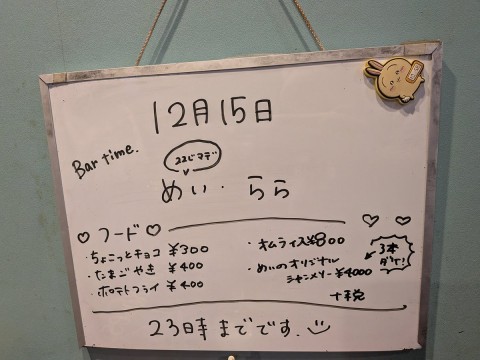 12月15日
Bar time.
22じマデ
めい・らら
♡フード♡
・ちょこっとチョコ ¥300
・たまごやき ¥400
・ポテトフライ ¥400
・オムライス¥800
・めいのオリジナル
シャンメリー ¥4000
3本
ダケ!
+税
23時までです.